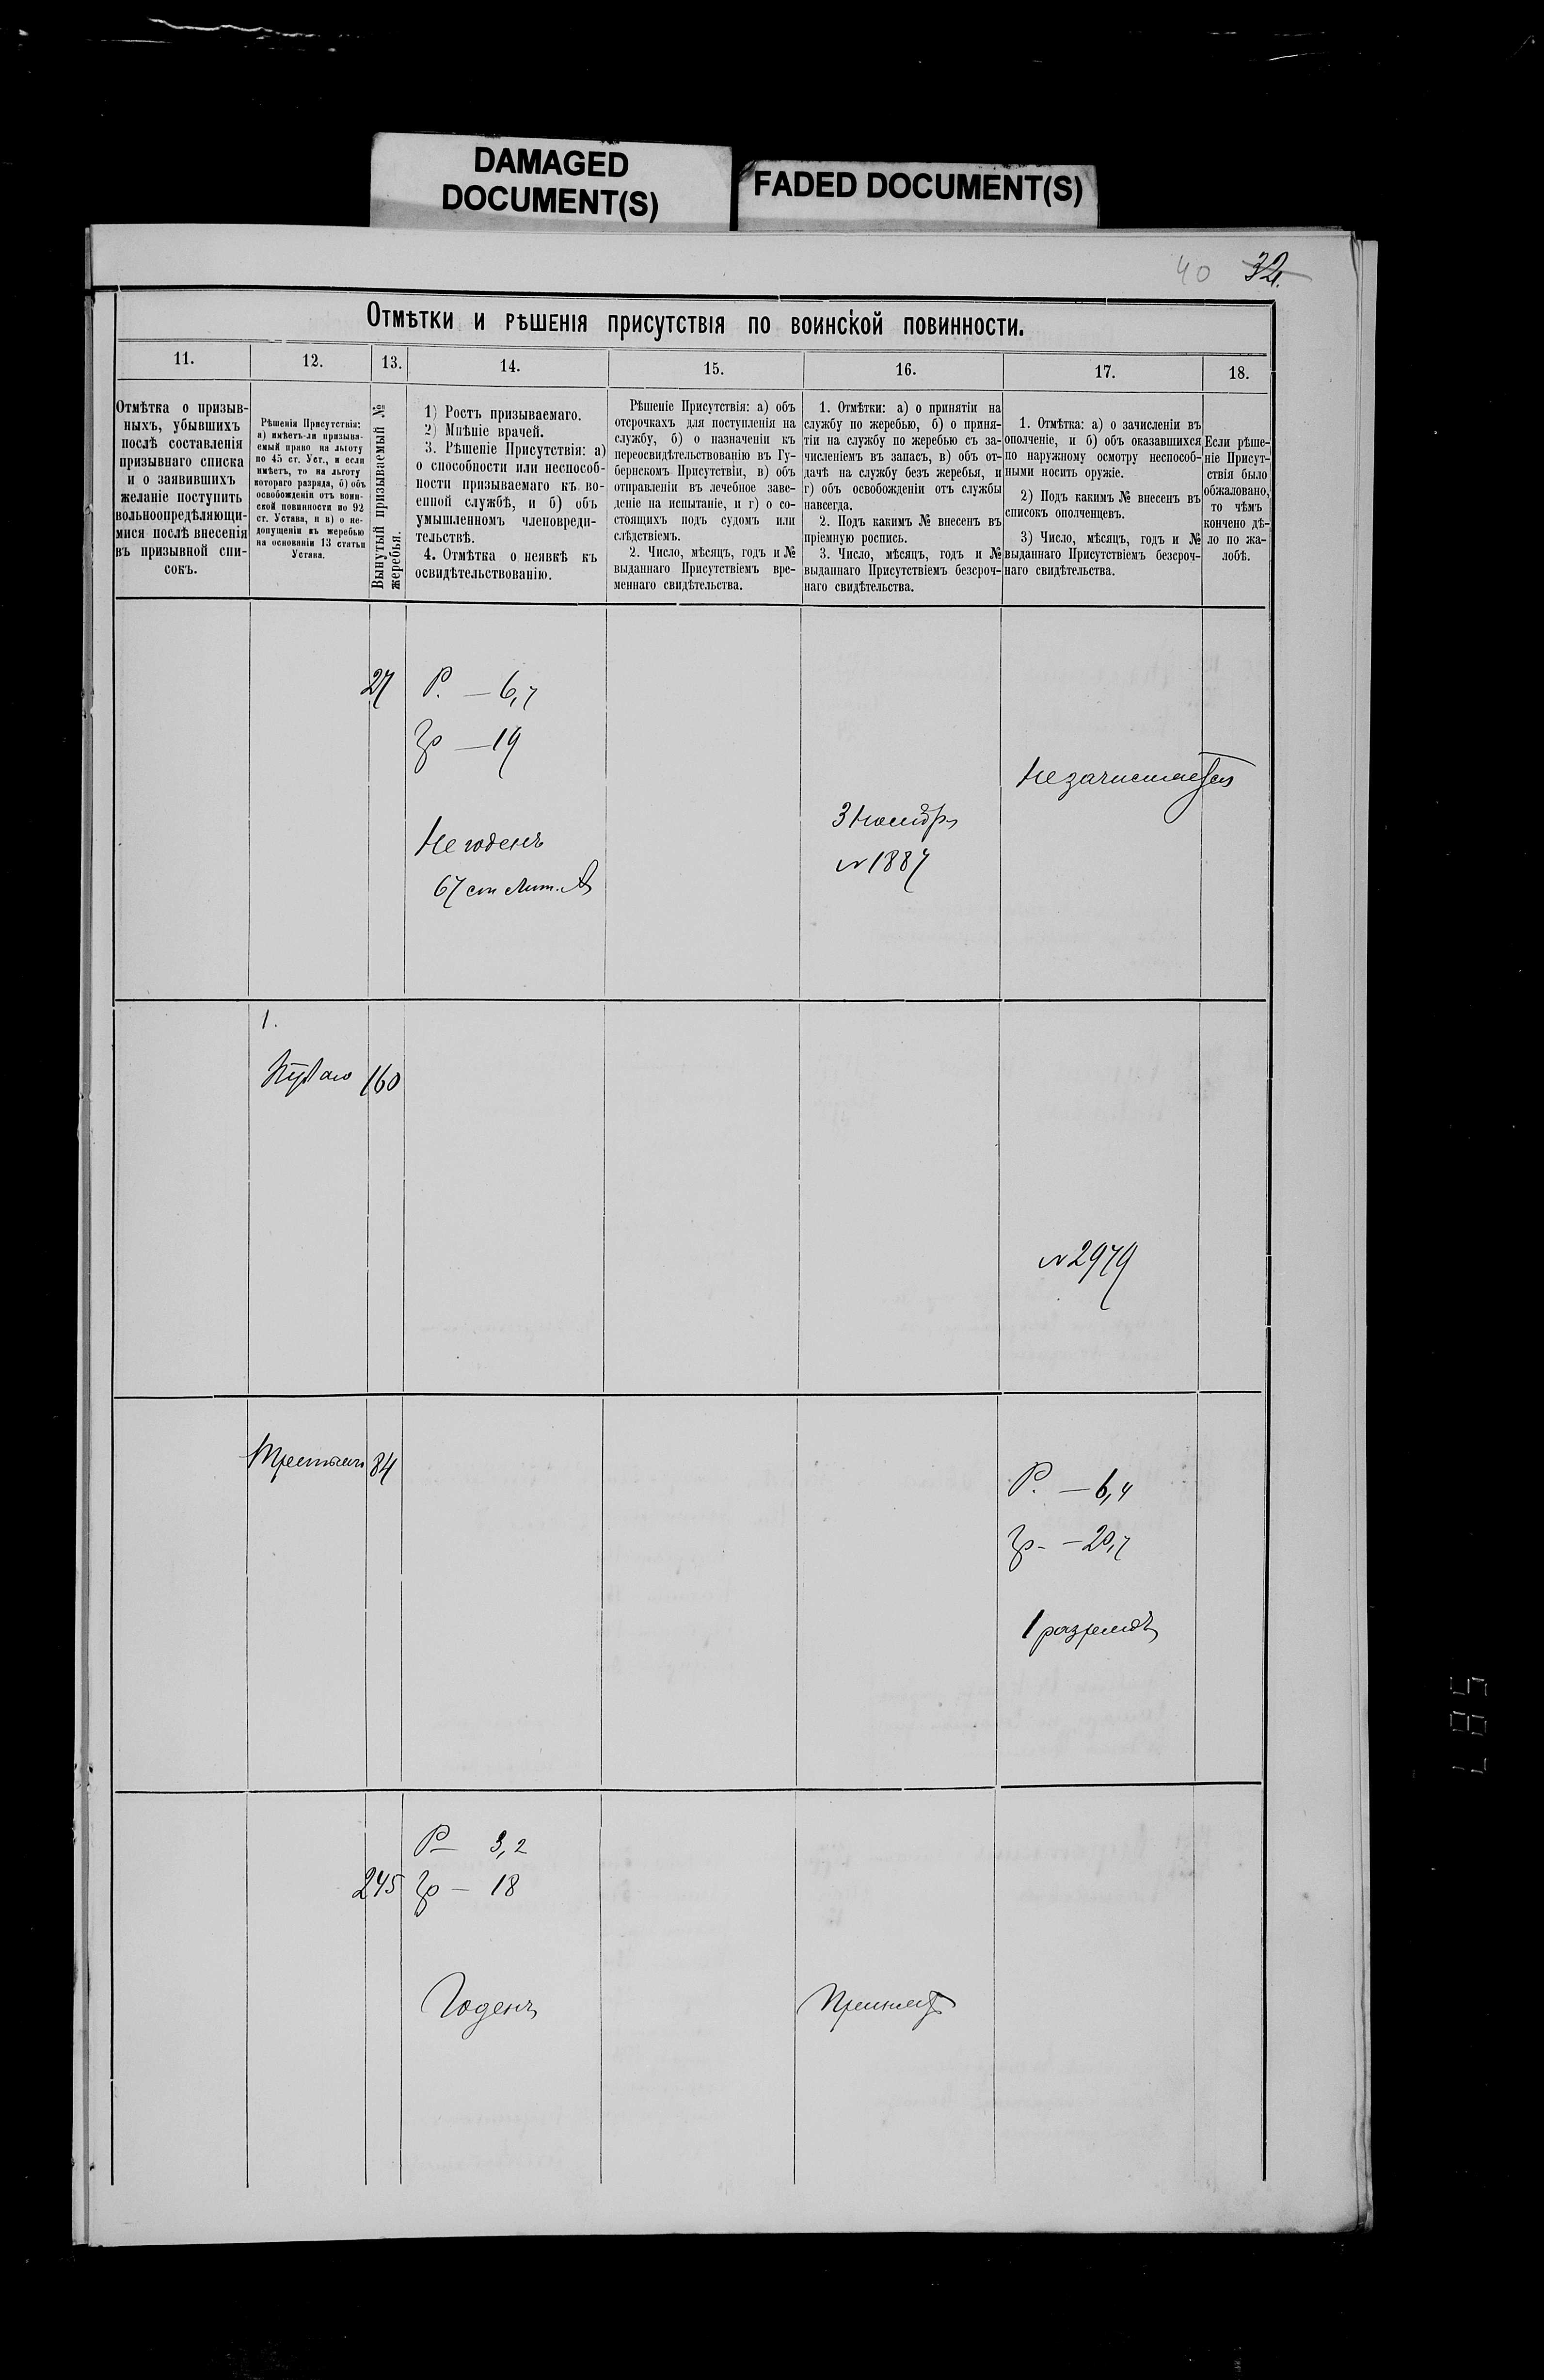 DAMAGED
DOCUMENT(S)
FADED DOCUMENT(S)
40 32.
Отмѣтки и рѣшенія присутствія по воинской повинности.
11. 12. 13. 14. 15. 16. 17. 18.
Отмѣтка о призыв-
ныхъ, убывшихъ
послѣ составленія
призывнаго списка
и о заявившихъ
желаніе поступить
вольноопредѣляющи-
мися послѣ внесенія
въ призывной спи-
сокъ.
Рѣшенія Присутствія:
а) имѣетъ-ли призыва-
емый право на льготу
по 45 ст. Уст., и если
имѣетъ, то на льготу
котораго разряда, б) объ
освобожденіи отъ воин-
ской повинности по 92
ст. Устава, и в) о не-
допущеніи къ жеребью
на основаніи 13 статьи
Устава.
Вынутый призываемый №
жеребья.
1) Ростъ призываемаго.
2) Мнѣніе врачей.
3. Рѣшеніе Присутствія: а)
о способности или неспособ-
ности призываемаго къ во-
енной службѣ, и б) объ
умышленномъ членовреди-
тельствѣ.
4. Отмѣтка о неявкѣ къ
освидѣтельствованію.
Рѣшеніе Присутствія: а) объ
отсрочкахъ для поступленія на
службу, б) о назначеніи къ
переосвидѣтельствованію въ Гу-
бернскомъ Присутствіи, в) объ
отправленіи въ лечебное заве-
деніе на испытаніе, и г) о со-
стоящихъ подъ судомъ или
слѣдствіемъ.
2. Число, мѣсяцъ, годъ и №
выданнаго Присутствіемъ вре-
меннаго свидѣтельства.
1. Отмѣтки: а) о принятіи на
службу по жеребью, б) о приня-
тіи на службу по жеребью съ за-
численіемъ въ запасъ, в) объ от-
дачѣ на службу безъ жеребья, и
г) объ освобожденіи отъ службы
навсегда.
2. Подъ какимъ № внесенъ въ
пріемную роспись.
3. Число, мѣсяцъ, годъ и №
выданнаго Присутствіемъ безсроч-
наго свидѣтельства.
1. Отмѣтка: а) о зачисленіи въ
ополченіе, и б) объ оказавшихся
по наружному осмотру неспособ-
ными носить оружіе.
2) Подъ какимъ № внесенъ въ
списокъ ополченцевъ.
3) Число, мѣсяцъ, годъ и №
выданнаго Присутствіемъ безсроч-
наго свидѣтельства.
Если рѣше-
ніе Присут-
ствія было
обжаловано,
то чѣмъ
кончено дѣ-
ло по жа-
лобѣ.
27 Р. — 6,7
Гр — 19
Не зачисляется
3 Ноября
Не годенъ
№ 1887
67 ст Лит. А
1.
160
№ 2979
Третьяго 84
Р. — 6,4
Гр - — 20,7
1 разрядъ
Р — 3,2
245 Гр — 18
Годенъ Принятъ
587